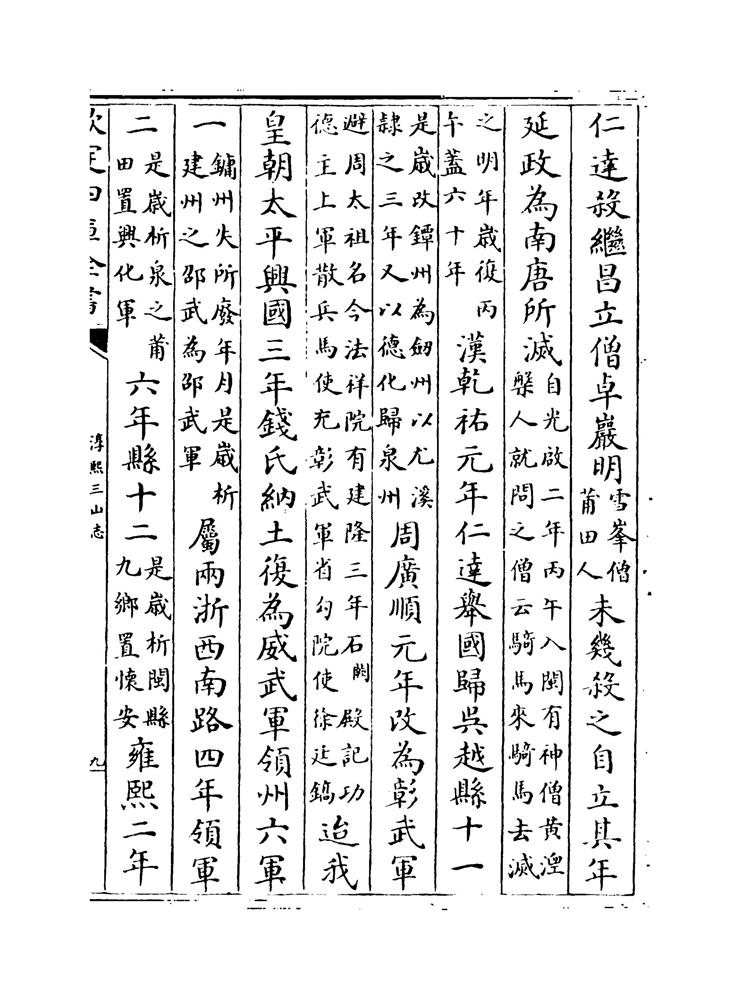 仁達殺繼昌立僧卓巖明雪峯僧莆田人未幾殺之自立其年
延政為南唐所滅自光啟二年丙午入閩有神僧黄湼槃人就問之僧云騎馬來騎馬去滅
之明年歲復丙午蓋六十年漢乾祐元年仁達舉國歸吳越縣十一
是歲改鐔州為劒州以尤溪隸之三年又以德化歸泉州周廣順元年改為彰武軍
避周太祖名今法祥院有建隆三年石闕殿記功德主上軍散兵馬使充彰武軍省勾院使徐廷鎬迨我
皇朝太平興國三年錢氏納土復為威武軍領州六軍
一鏞州失所廢年月是歲析建州之邵武為邵武軍屬兩浙西南路四年領軍
二是歲析泉之莆田置興化軍六年縣十二是歲析閩縣九鄉置懷安雍熙二年
欽定四庫全書
淳熙三山志
九